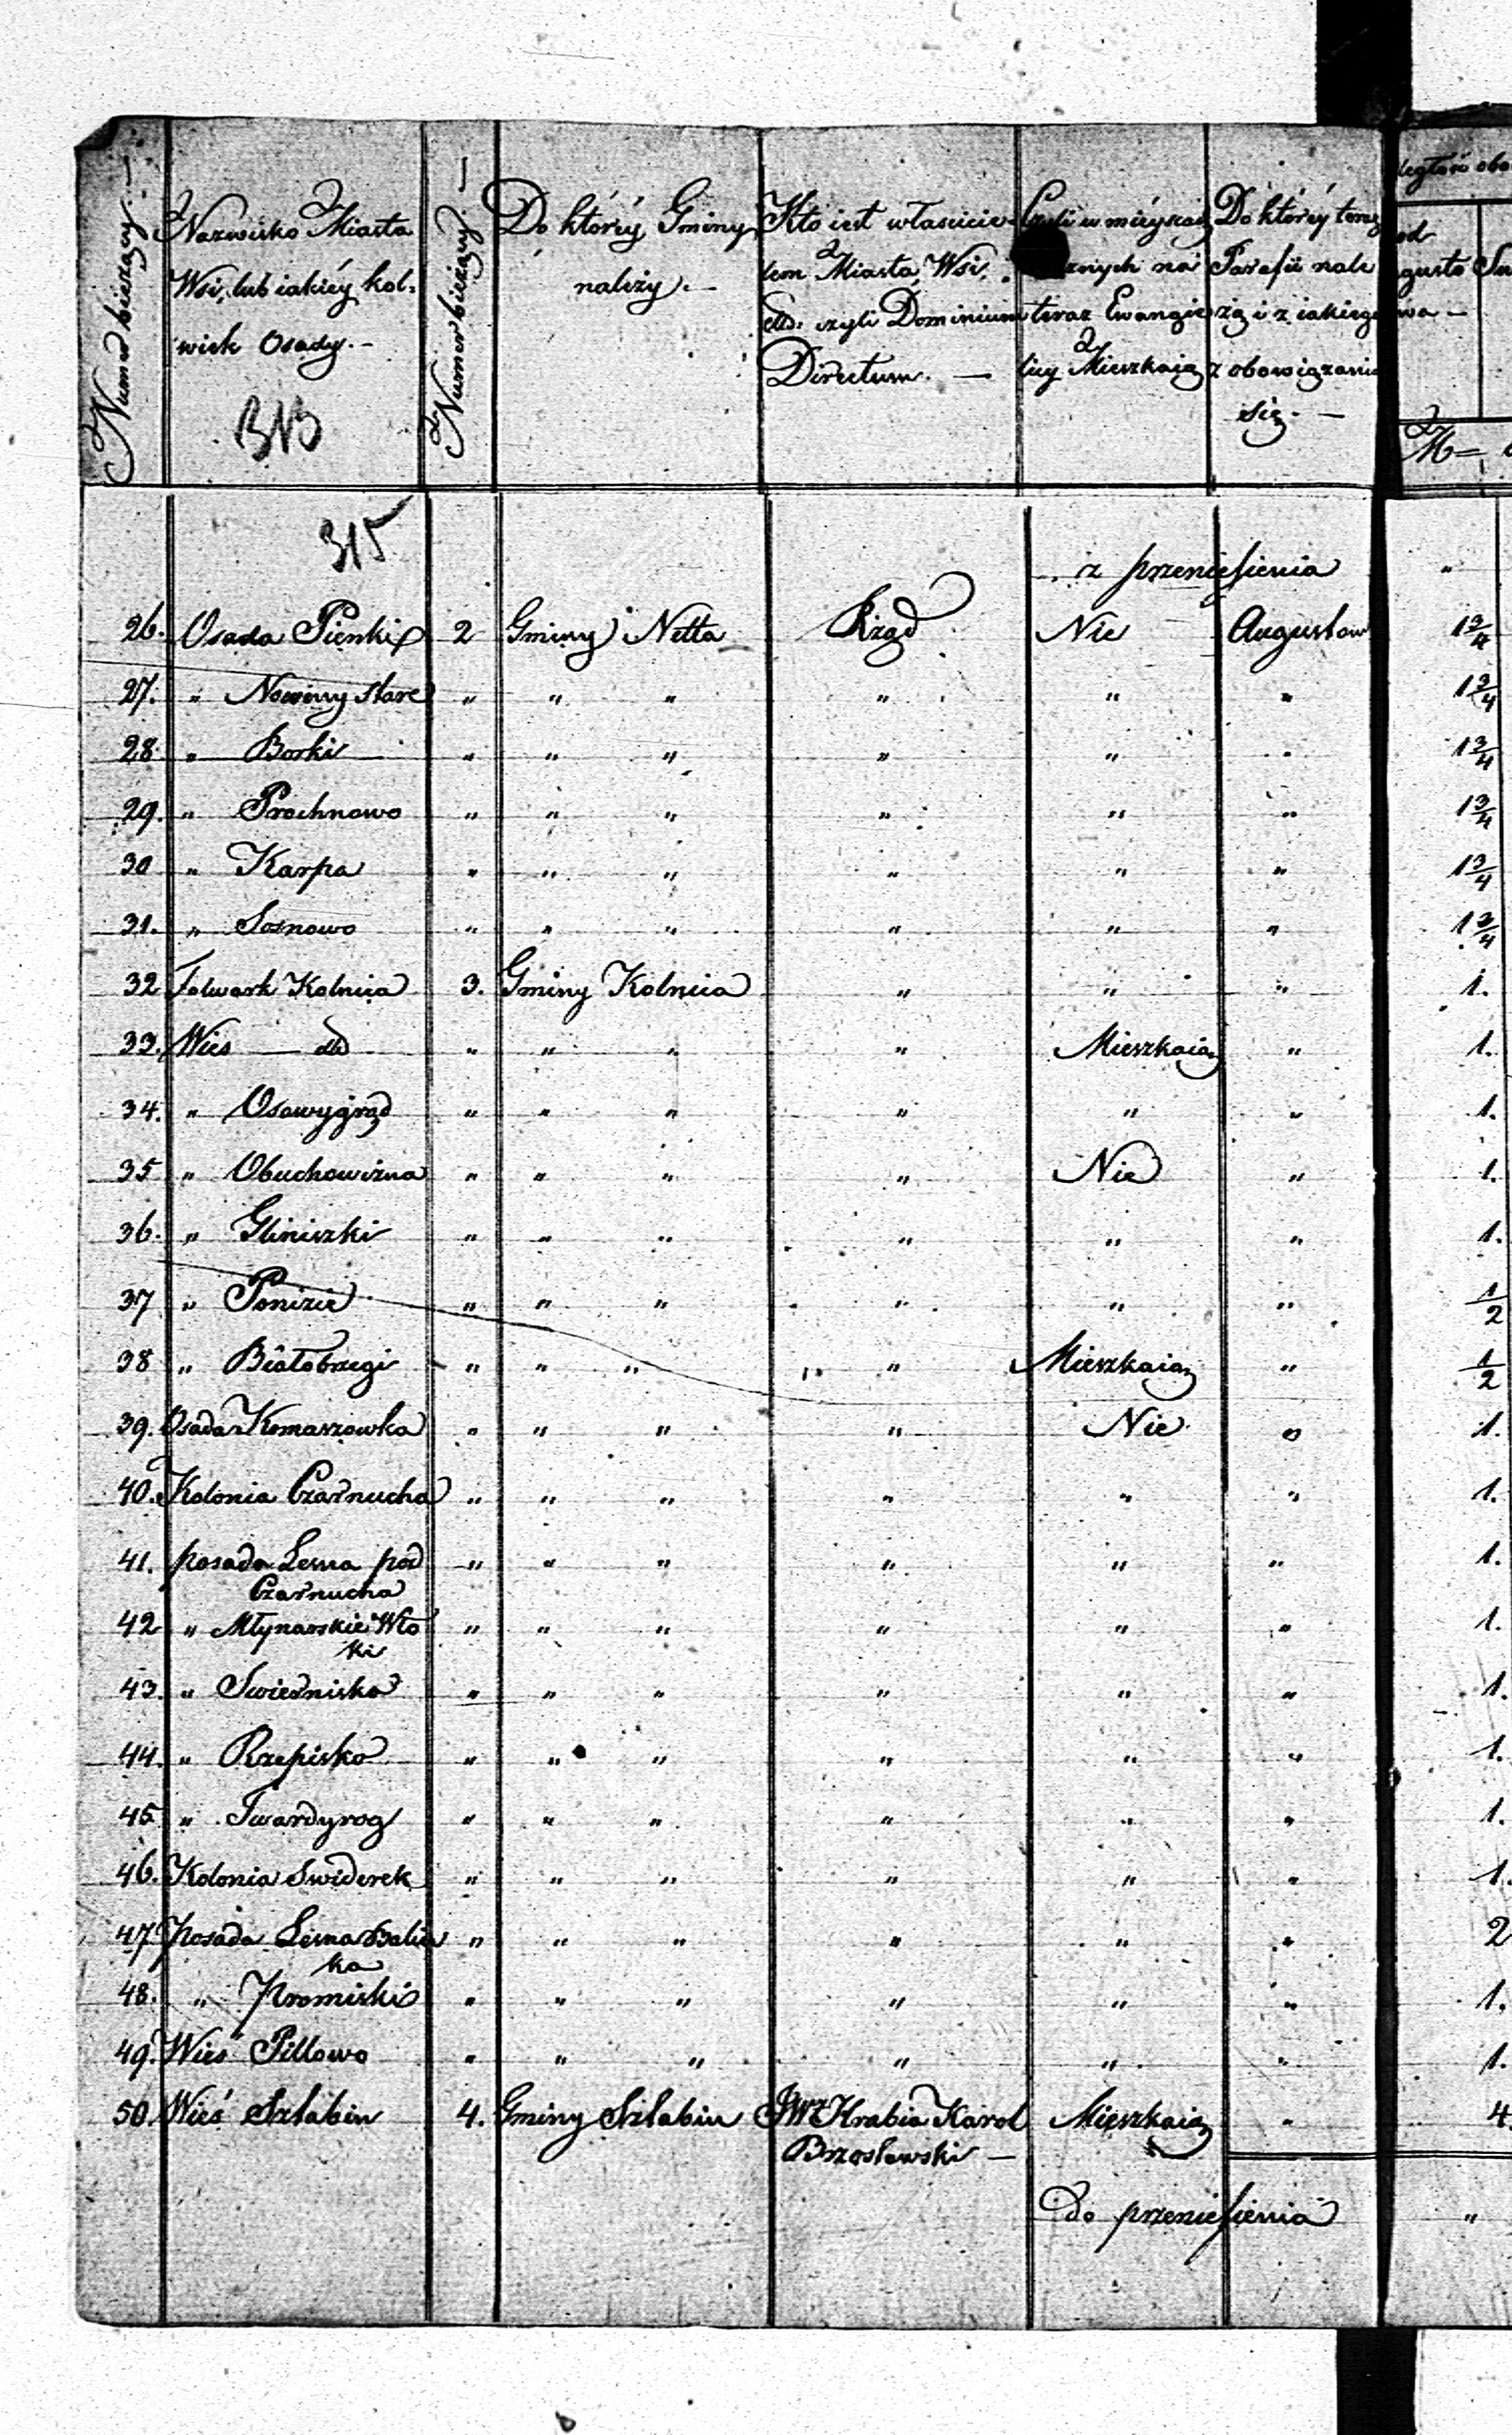 Numer bieżący. —
Nazwisko Miasta
Wsi, lub iakiéy kol-
wiek Osady. -
Numer bieżący. —
Do któréy Gminy
należy. -
Kto iest właścicie-
lem Miasta, Wsi,
etc. czyli Dominium
Directum. —
Czyli w mieysca
znych na
teraz Ewangie
licy Mieszkaią
Do któréy teraz
Parafii nale
żą i z iakiego
z obowiązania
się. —
ległość obo
od
gusto
wa —
M =
315
z przeniesienia "
26. Osada Pienki 2 Gminy Netta Rząd Nie Augustow 1 3/4
27. " Nowiny stare " " " " " " 1 3/4
28. " Borki " " " " " " 1 3/4
29. " Prochnowo " " " " " " 1 3/4
30 " Karpa " " " " " " 1 3/4
31. " Sosnowo " " " " " " 1 3/4
32 Folwark Kolnica 3. Gminy Kolnica " " " 1.
33. Wies — dto " " " " Mieszkaią " 1.
34. " Osowygrąd " " " " " " 1.
35 " Obuchowizna " " " " Nie " 1.
36. " Gliniszki " " " " " " 1.
37 " Ponizie " " " " " " 1/2
38 " Białobrzegi " " " " Mieszkaią " 1/2
39. Osada Komaszowka " " " " Nie " 1.
40. Kolonia Czarnucha " " " " " " 1.
41. posada Lesna pod " " " " " " 1.
Czarnucha
42 " Młynarskie Wło " " " " " " 1.
ki
43. " Swiednisko " " " " " " 1.
44. " Rzepisko " " " " " " 1.
45 " Twardyrog " " " " " " 1.
46. Kolonia Swiderek " " " " " " 1.
47 Posada Lesna Balin " " " " " " 2
ka
48. " Promiski " " " " " " 1.
49. Wies Pillowo " " " " " " 1.
50. Wieś Sztabin 4. Gminy Sztabin JW Hrabia Karol Mieszkaią " 4
Brzostowski —
Do przeniesienia "